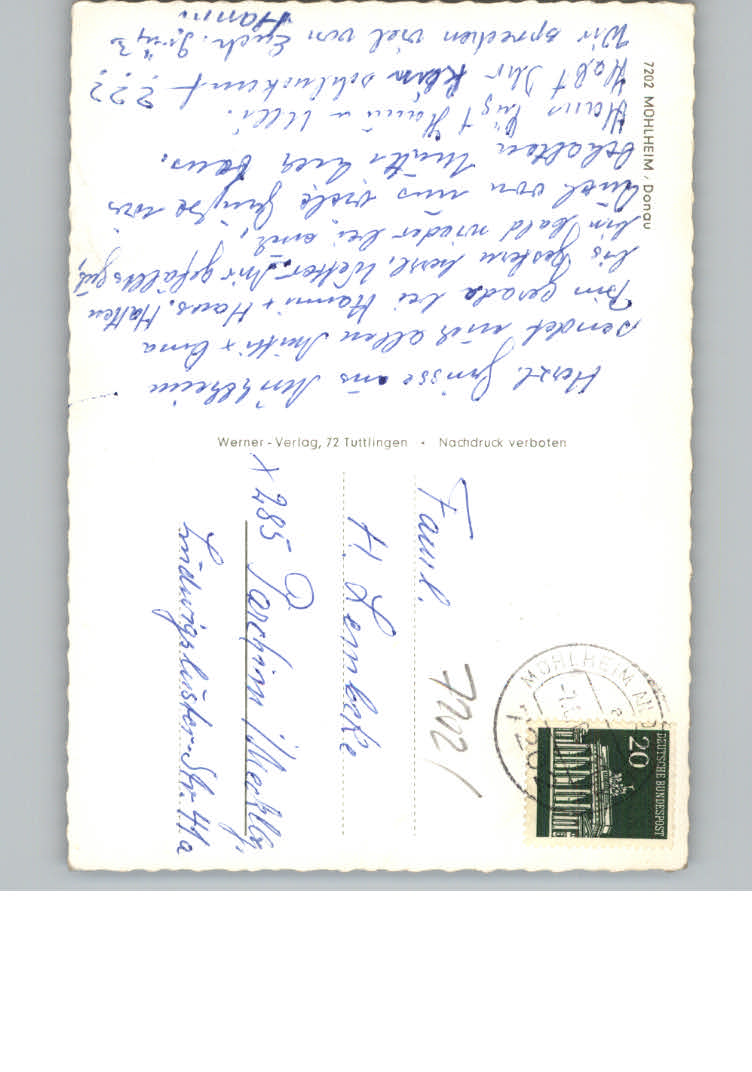 7202 MÜHLHEIM / Donau
Herzl. Grüsse aus Mühlheim
sendet euch allen Mutti + Oma
Bin gerade bei Hanni + Hans. Hatten
bis gestern herrl. Wetter. Mir gefällts gut,
bin bald wieder bei euch,
Auch von uns viele Grüße wir
behalten Mutti hier
Hans, Hanni u Ulli.
Habt Ihr kein Schluckauf ???
Wir sprechen viel von Euch. Gruß
Hanni
Werner-Verlag, 72 Tuttlingen • Nachdruck verboten
Famil.
H. Lembcke
X 285 Parchim i/Mecklbg.
Ludwigsluster-Str. 41a
MÜHLHEIM
DEUTSCHE BUNDESPOST
20